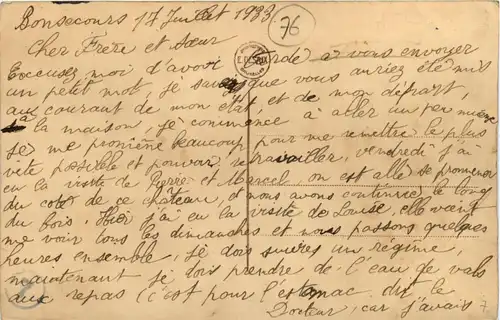 Bonsecours 17 Juillet 1933
76
Cher Frère et Sœur
Excusez moi d'avoir tardé à vous envoyer
un petit mot, je savais que vous auriez été mis
au courant de mon état et de mon départ,
à la maison, je commence à aller un peu mieux
je me promène beaucoup pour me remettre le plus
vite possible et pouvoir retravailler, vendredi j'ai
eu la visite de Pierre et Marcel on est allé se promener
du coté de ce château, et nous avons continuer le long
du bois. Hier j'ai eu la visite de Louise, elle vient
me voir tous les dimanches et nous passons quelques
heures ensemble, je dois suivre un régime,
maintenant je dois prendre de l'eau de vals
aux repas (c'est pour l'estomac dit le
Docteur, car j'avais